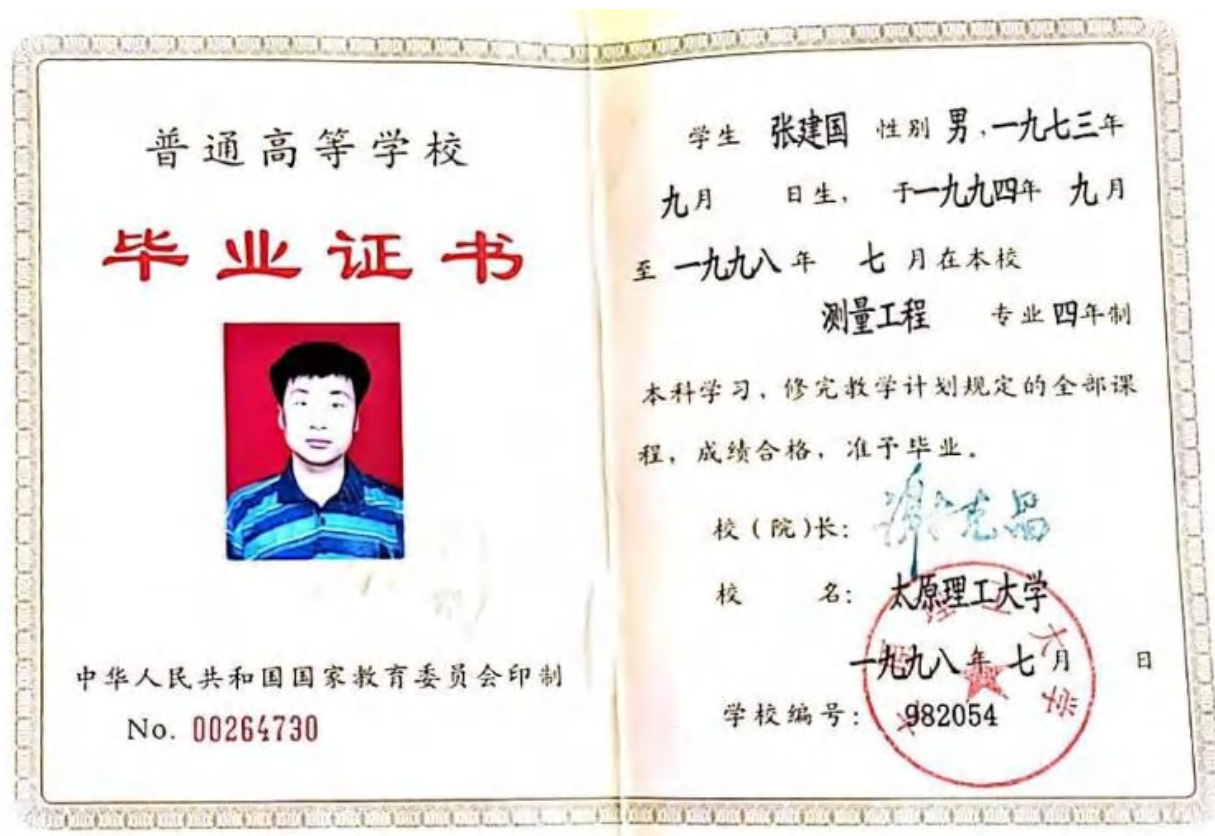 普通高等学校
毕业证书
中华人民共和国国家教育委员会印制
No. 00264730
学生 张建国 性别 男,一九七三年
九月 日生, 于一九九四年 九月
至 一九九八 年 七 月在本校
测量工程 专业 四年制
本科学习,修完教学计划规定的全部课
程,成绩合格,准予毕业。
校(院)长:
校 名: 太原理工大学
一九九八 年 七 月 日
学校编号: 982054